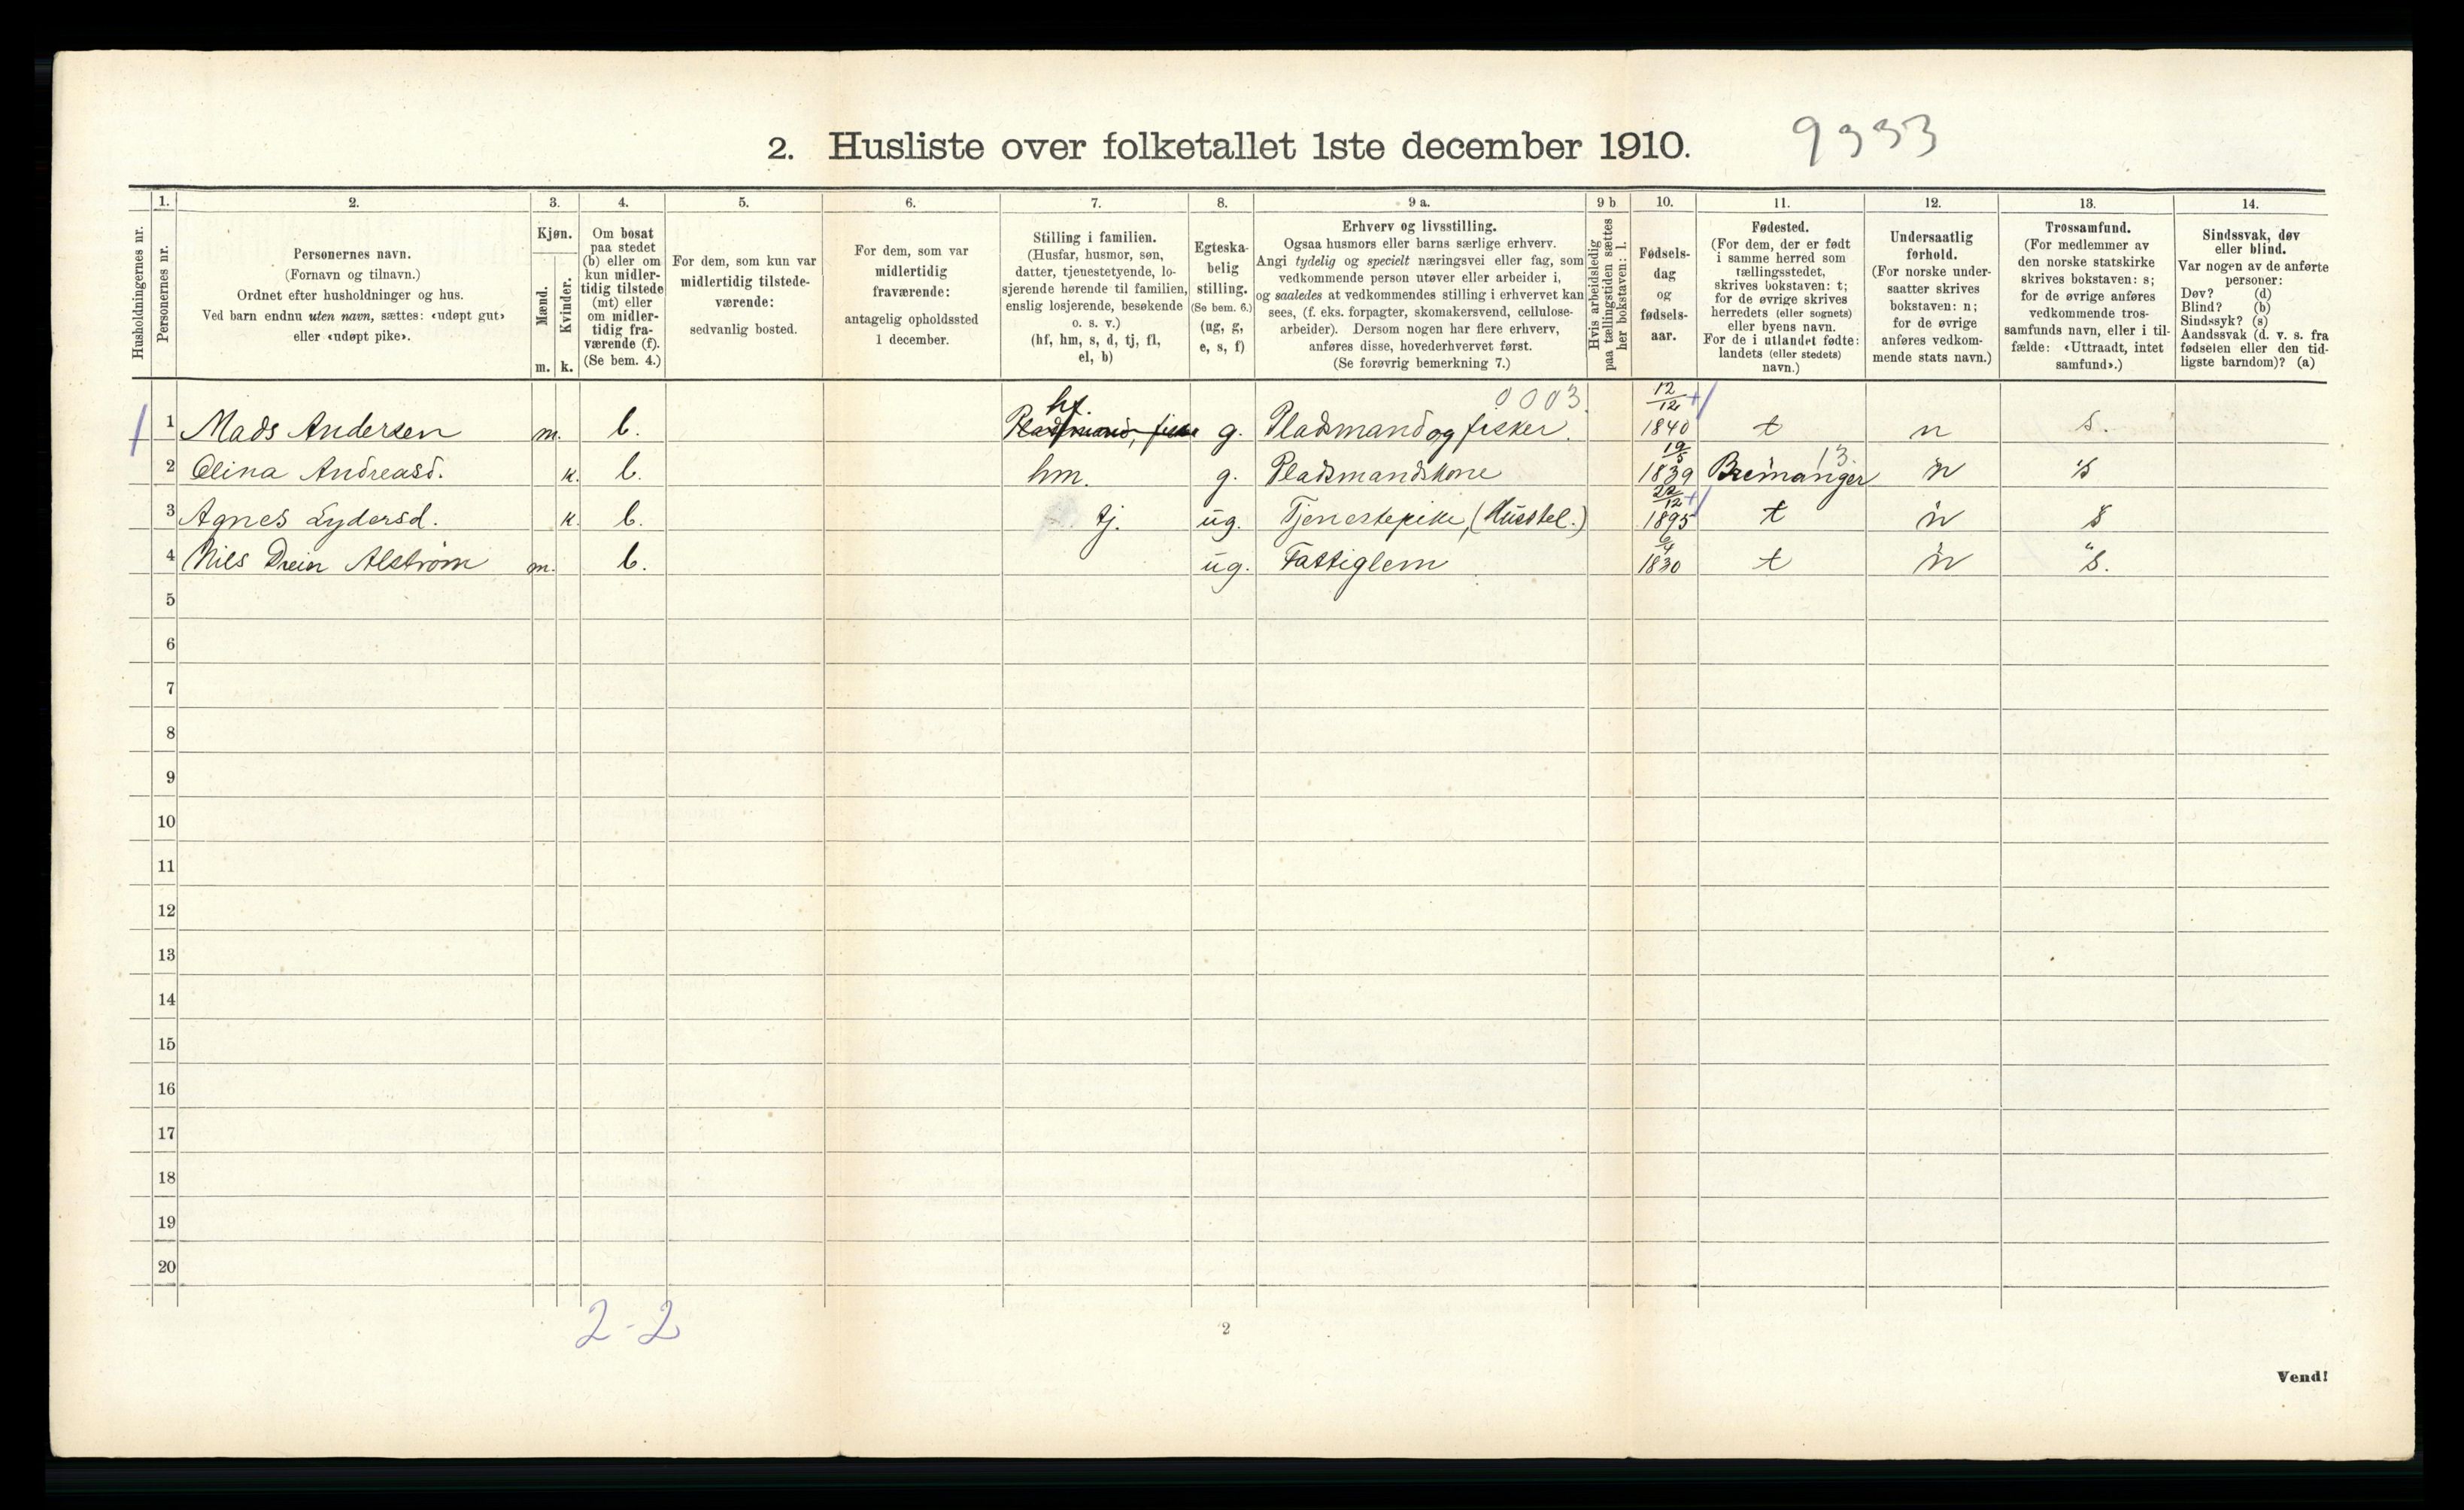 2. Husliste over folketallet 1ste december 1910.
9933
Husholdningernes nr.
1.
Personernes nr.
2.
Personernes navn.
(Fornavn og tilnavn.)
Ordnet efter husholdninger og hus.
Ved barn endnu uten navn, sættes: «udøpt gut»
eller «udøpt pike».
3.
Kjøn.
Mænd.
Kvinder.
m. k.
4.
Om bosat
paa stedet
(b) eller om
kun midler-
tidig tilstede
(mt) eller
om midler-
tidig fra-
værende (f).
(Se bem. 4.)
5.
For dem, som kun var
midlertidig tilstede-
værende:
sedvanlig bosted.
6.
For dem, som var
midlertidig
fraværende:
antagelig opholdssted
1 december.
7.
Stilling i familien.
(Husfar, husmor, søn,
datter, tjenestetyende, lo-
sjerende hørende til familien,
enslig losjerende, besøkende
o. s. v.)
(hf, hm, s, d, tj, fl,
el, b)
8.
Egteska-
belig
stilling.
(Se bem. 6.)
(ug, g,
e, s, f)
9 a.
Erhverv og livsstilling.
Ogsaa husmors eller barns særlige erhverv.
Angi tydelig og specielt næringsvei eller fag, som
vedkommende person utøver eller arbeider i,
og saaledes at vedkommendes stilling i erhvervet kan
sees, (f. eks. forpagter, skomakersvend, cellulose-
arbeider). Dersom nogen har flere erhverv,
anføres disse, hovederhvervet først.
(Se forøvrig bemerkning 7.)
9 b
Hvis arbeidsledig
paa tællingstiden sættes
her bokstaven: l.
10.
Fødsels-
dag
og
fødsels-
aar.
11.
Fødested.
(For dem, der er født
i samme herred som
tællingsstedet,
skrives bokstaven: t;
for de øvrige skrives
herredets (eller sognets)
eller byens navn.
For de i utlandet fødte:
landets (eller stedets)
navn.)
12.
Undersaatlig
forhold.
(For norske under-
saatter skrives
bokstaven: n;
for de øvrige
anføres vedkom-
mende stats navn.)
13.
Trossamfund.
(For medlemmer av
den norske statskirke
skrives bokstaven: s;
for de øvrige anføres
vedkommende tros-
samfunds navn, eller i til-
fælde: «Uttraadt, intet
samfund».)
14.
Sindssvak, døv
eller blind.
Var nogen av de anførte
personer:
Døv? (d)
Blind? (b)
Sindssyk? (s)
Aandssvak (d. v. s. fra
fødselen eller den tid-
ligste barndom)? (a)
hf. 0003. 12/12 +
1 Mads Andersen m. b. Pladsmand, fisker g. Pladsmand og fisker. 1840 t n s.
2 Olina Andreasd. k. b. hm. g. Pladsmandskone 19/5 1839 Bremanger 13. n s
3 Agnes Lydersd. k. b. tj. ug. Tjenestepike, (Husstel.) 22/12 + 1895 t n s
4 Nils Dreier Alstrøm m. b. ug. Fattiglem 6/4 1830 t n s.
5
6
7
8
9
10
11
12
13
14
15
16
17
18
19
20
2-2
2
Vend!